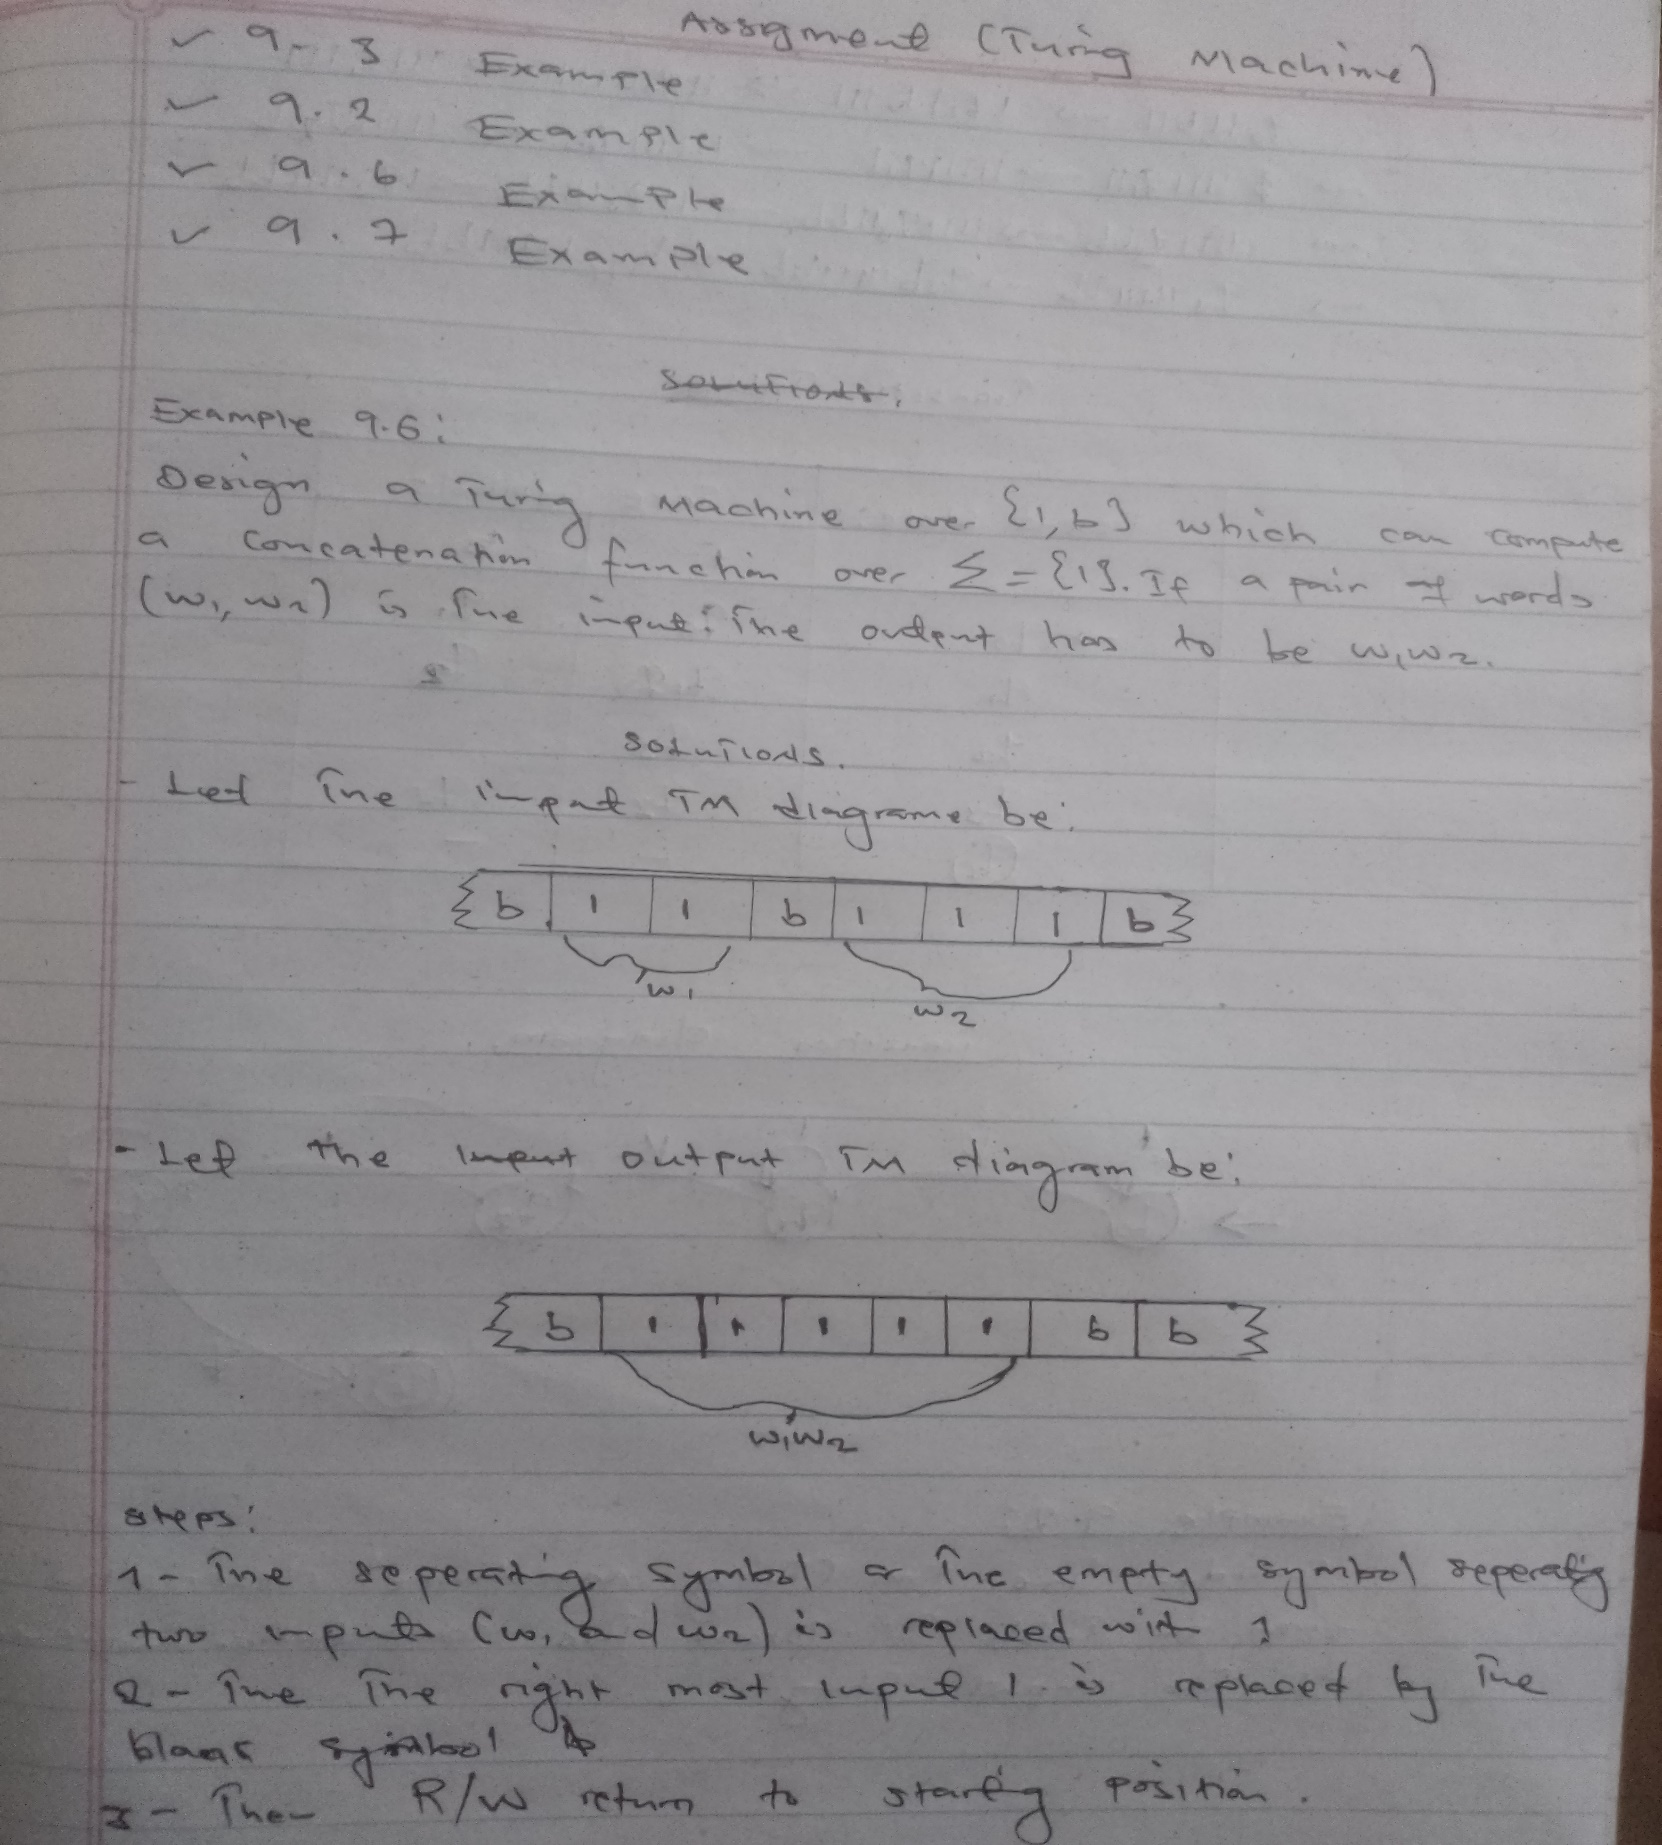 Assgment (Turing Machine)
✓ 9-3 Example
✓ 9.2 Example
✓ 9.6 Example
✓ 9.7 Example
Solutions.
Example 9.6:
Design a Turing Machine over {1,b} which can compute
a concatenation function over Σ = {1}. If a pair of words
(w1, w2) is the input. The output has to be w1w2.
Solutions.
- Let the input TM diagrame be:
b 1 1 b 1 1 1 b
w1
w2
- Let the input output TM diagram be:
b 1 1 1 1 1 b b
w1w2
steps:
1- The seperating symbol or the empty symbol seperatig
two inputs (w1 and w2) is replaced with 1
2- The The right most input 1 is replaced by the
symbol b
3- Then R/W return to startig position.